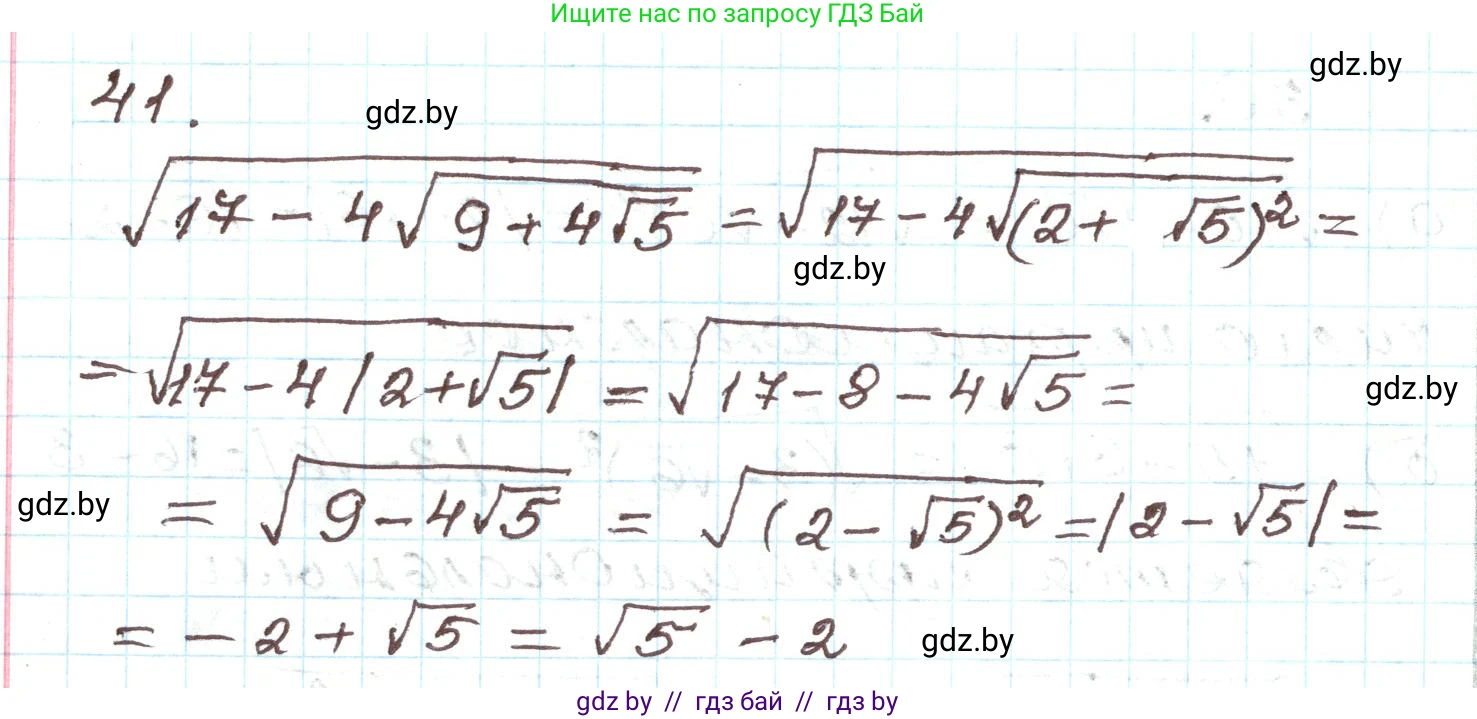 Ищите нас по запросу ГДЗ Бай
gdz.by
41.
gdz.by
√(17 - 4√(9 + 4√5)) = √(17 - 4√((2 + √5)²)) =
gdz.by
= √(17 - 4|2 + √5|) = √(17 - 8 - 4√5) =
gdz.by
gdz.by
= √(9 - 4√5) = √((2 - √5)²) = |2 - √5| =
= -2 + √5 = √5 - 2
gdz.by
gdz.by // гдз бай // гдз by